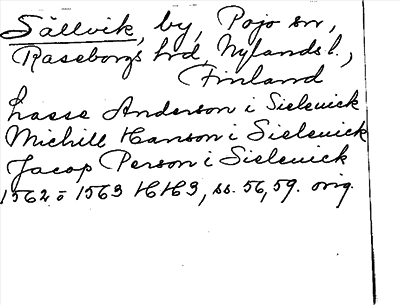 Sällvik, by, Pojo sn,
Raseborgs hrd, Nylands l.,
Finland
Lasse Anderson i Sielewick
Michill Hanson i Sielewick
Jacop Person i Sielewick
1562 - 1563 HH3, ss. 56, 59. orig.